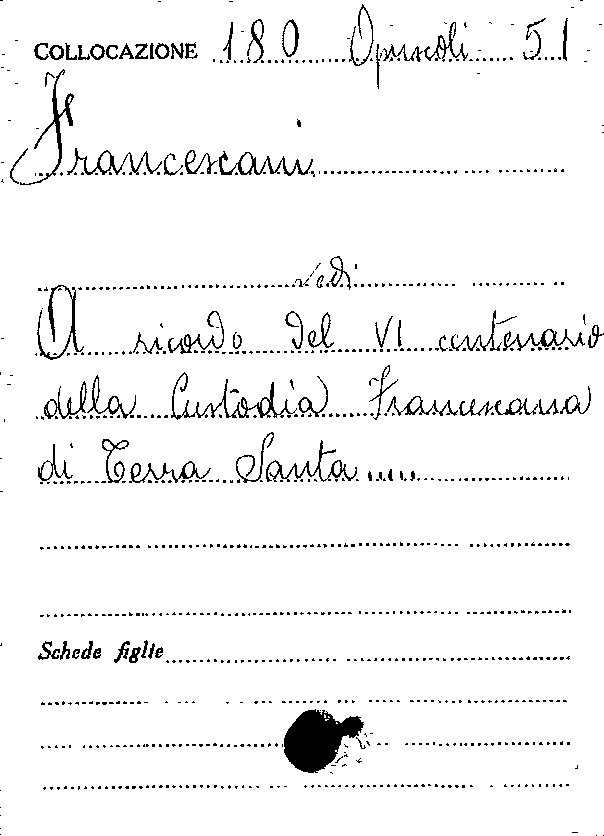 COLLOCAZIONE 180 Opuscoli 51
Francescani
vedi
A ricordo del VI centenario
della Custodia Francescana
di Terra Santa.....
Schede figlie